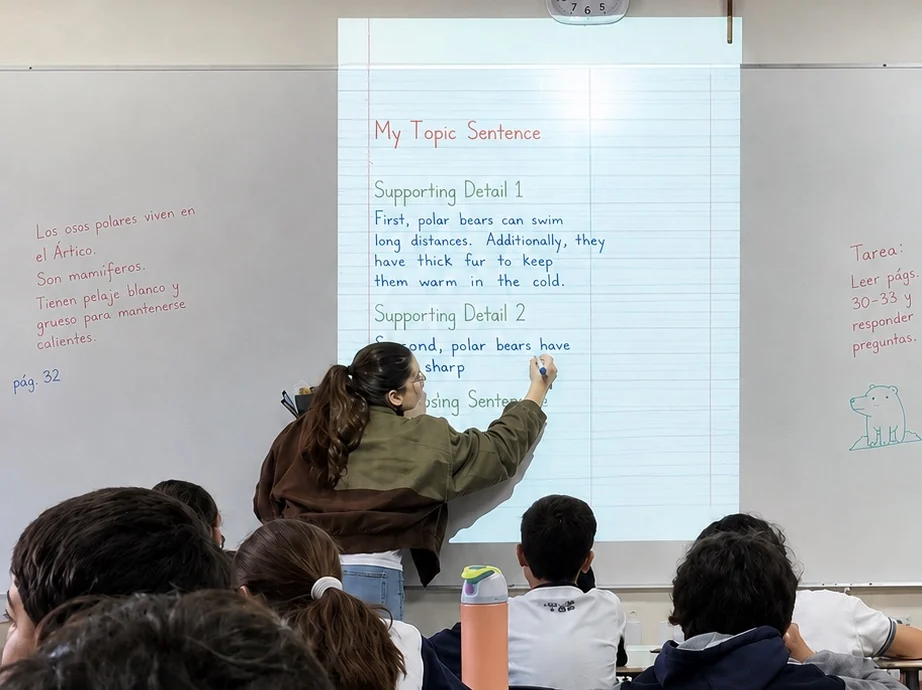 7 6 5
Los osos polares viven en
el Ártico.
Son mamíferos.
Tienen pelaje blanco y
grueso para mantenerse
calientes.
pág. 32
My Topic Sentence
Supporting Detail 1
First, polar bears can swim
long distances. Additionally, they
have thick fur to keep
them warm in the cold.
Supporting Detail 2
polar bears have
sharp
Tarea:
Leer págs.
30-33 y
responder
preguntas.